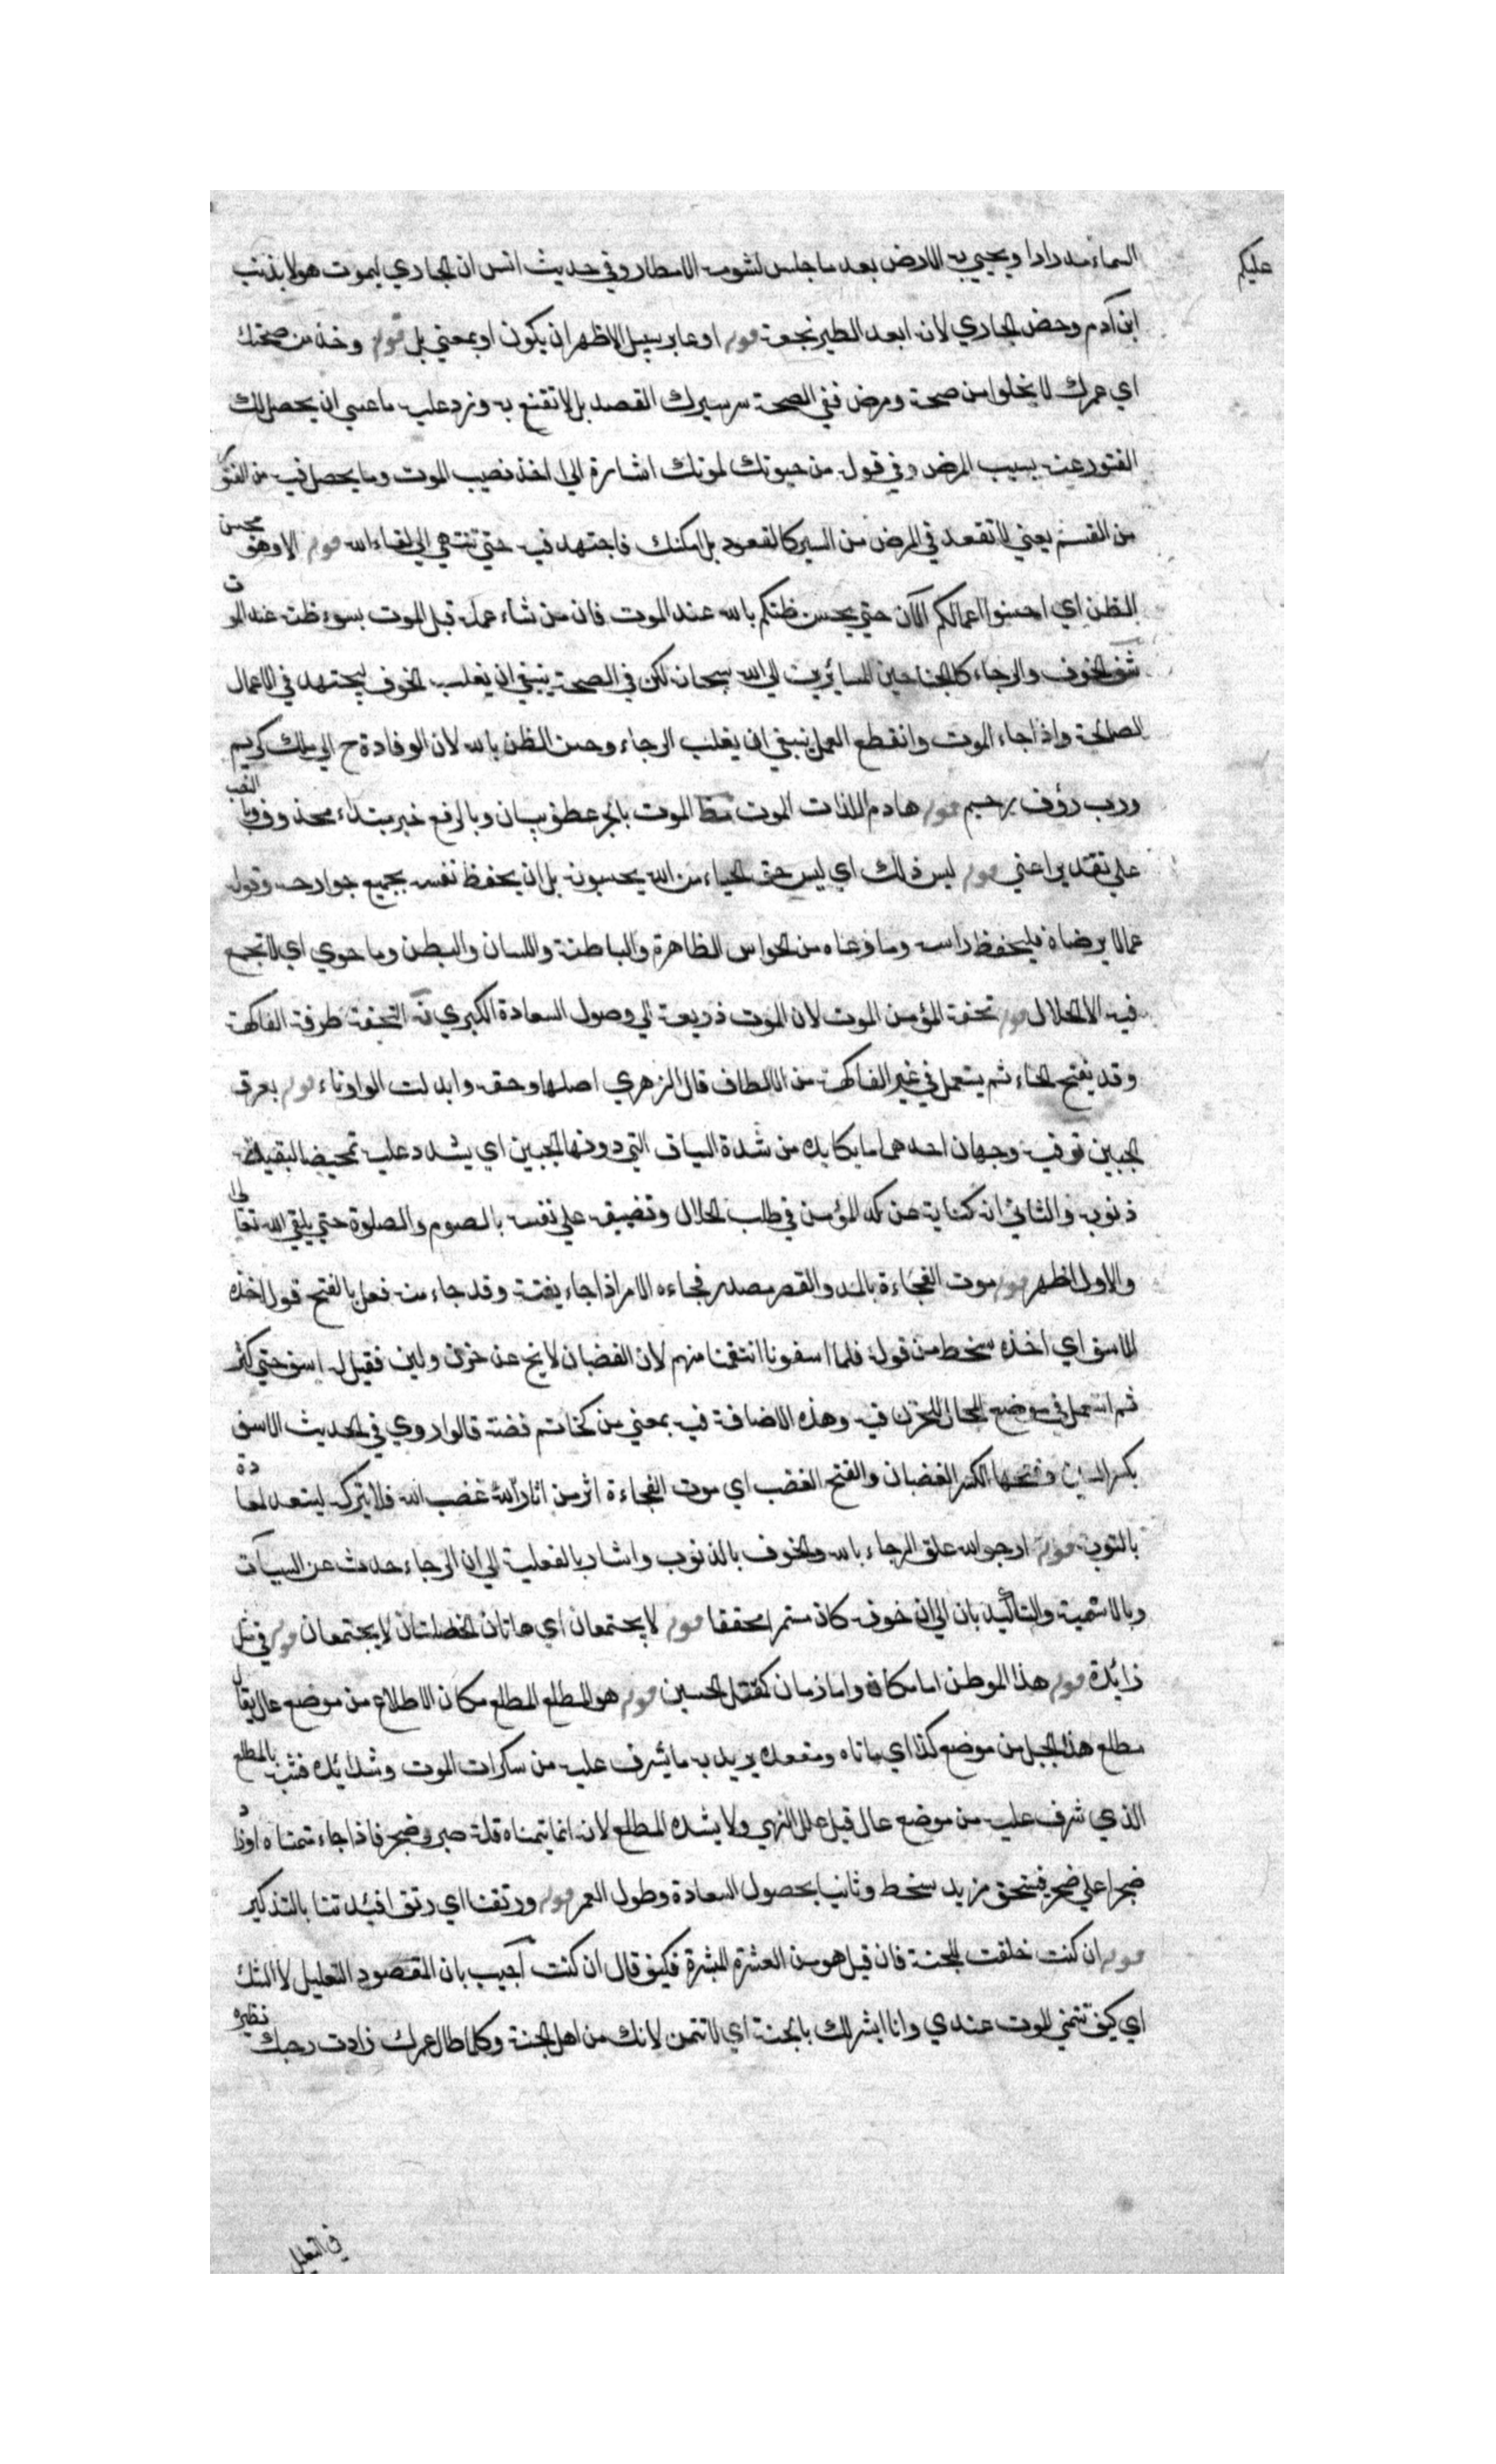 عليكم
السماء مدرارا ويحيي به الارض بعد ما جلس لشومه الامطار وفي حديث انس ان الحباري ليموت هزلا بذنب
ابن آدم وخص الحباري لانه ابعد الطير نجعة قوله او عابر سبيل الاظهر ان يكون او بمعني بل قوله وخذ من صحتك
اي عمرك لا يخلوا من صحة ومرض ففي الصحة سر سيرك القصد بل لا تقنع به وزد عليه ما عسي ان يحصل لك
الفتور عنه بسبب المرض وفي قوله من حيوتك لموتك اشارة الي اخذ نصيب الموت وما يحصل فيه من الفتور
من القسم يعني لا تقعد في المرض من السير كالقعود بل امكنك فاجتهد فيه حتي تنتهي الي لقاء الله قوله الا وهو يحسن
الظن اي احسنوا اعمالكم الآن حتي يحسن ظنكم بالله عند الموت فان من ساء عمله قبل الموت يسوء ظنه عند الموت
شف الخوف والرجاء كالجناحين للسائرين الي الله سبحانه لكن في الصحة ينبغي ان يغلب الخوف ليجتهد في الاعمال
الصالحة واذا جاء الموت وانقطع العمل ينبغي ان يغلب الرجاء وحسن الظن بالله لان الوفادة ح الي ملك كريم
ورب رؤف رحيم قوله هادم اللذات الموت مظ الموت بالجر عطف بيان وبالرفع خبر مبتداء محذوف وبالنصب
علي تقدير اعني قوله ليس ذلك اي ليس حق الحياء من الله يحسبونه بل ان يحفظ نفسه بجميع جوارحه وقوله
عمالا يرضاه فليحفظ راسه وما وعاه من الحواس الظاهرة والباطنة واللسان والبطن وما حوي اي لا تجمع
فيه الا الحلال قوله تحفة المؤمن الموت لان الموت ذريعة الي وصول السعادة الكبري نه التحفة طرفة الفاكهة
وقد يفتح الحاء ثم يستعمل في غير الفاكهة من الالطاف قال الزهري اصلها وحفة وابدلت الواو تاء قوله بعرق
الجبين تو فيه وجهان احدهما ما يكابده من شدة السياق التي دونها الجبين اي يشدد عليه تمحيصا لبقية
ذنوبه والثاني انه كناية عن كد المؤمن في طلب الحلال وتضييقه علي نفسه بالصوم والصلوة حتي يلقي الله تعالي
والاول اظهر قوله موت الفجاءة بالمد والقصر مصدر فجاءه الامر اذا جاء بغتة وقد جاء منه فعل بالفتح قوله اخذه
الاسف اي اخذه سخط من قوله فلما اسفونا انتقمنا منهم لان الغضبان لا يخ عن حزن ولهف فقيل له اسف حتي كثر
ثم استعمل في موضع لا مجال للحزن فيه وهذه الاضافة فيه بمعني من كخاتم فضة قالوا روي في الحديث الاسف
بكسر السين وفتحها الكسر الغضبان والفتح الغضب اي موت الفجاءة اثر من اثار الله غضب الله فلا يتركه ليستعد لمعادة
بالتوبة قوله ارجو الله علق الرجاء بالله والخوف بالذنوب واشار بالفعلية الي ان الرجاء حدث عن السيآت
وبالاسمية والتاكيد بان الي ان خوفه كان مستمرا محققا قوله لا يجتمعان اي هاتان الخصلتان لا يجتمعان قوله في مثل
زائدة قوله هذا الموطن اما مكان واما زمان كمقتل الحسين قوله هول المطلع المطلع مكان الاطلاع من موضع عال يقال
مطلع هذا الجبل من موضع كذا اي ماتاه ومصعده يريد به ما يشرف عليه من سكرات الموت وشدائده فشبه بالمطلع
الذي شرف عليه من موضع عال قيل علل النهي ولا بشدة المطلع لانه انما يتمناه قلة صبر وضجر فاذا جاء متمناه ازداد
ضجرا علي ضجر فيستحق مزيد سخط وثانيا بحصول السعادة وطول العمر قوله ورققنا اي رقق افئدتنا بالتذكير
قوله ان كنت خلقت للجنة فان قيل هو من العشرة المبشرة فكيف قال ان كنت اجيب بان المقصود التعليل لا الشك
اي كيف تتمني الموت عندي وانا ابشرك بالجنة اي لا تتمن لانك من اهل الجنة وكلما طال عمرك زادت درجتك نظيره
في التعليل